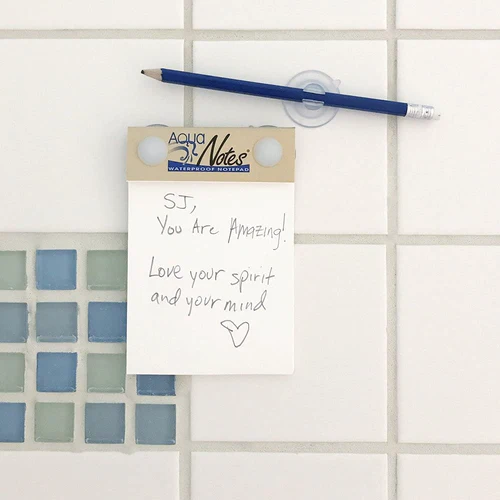 Aqua
Notes®
WATERPROOF NOTEPAD
SJ,
You Are Amazing!
Love your spirit
and your mind